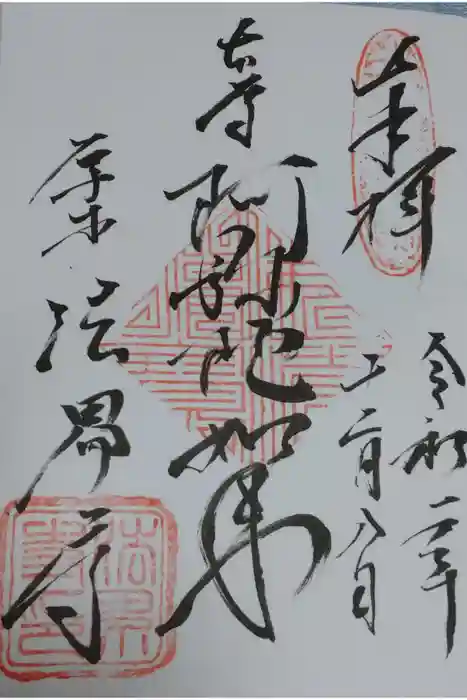 奉拝
令和二年
十二月八日
本尊
阿弥陀如来
法界寺